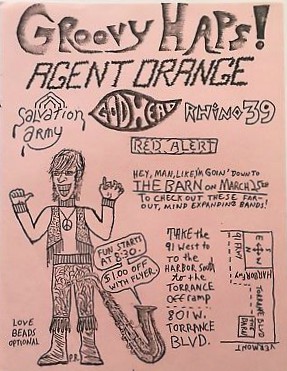 GROOVY HAPS!
AGENT ORANGE
Salvation army
GODHEAD
RHINO 39
RED ALERT
HEY, MAN, LIKE, I'M GOIN' DOWN TO
THE BARN ON MARCH 25th
TO CHECK OUT THESE FAR-
OUT, MIND EXPANDING BANDS!
FUN STARTS
AT 8:30
$1.00 OFF
WITH FLYER
TAKE the
91 West to
to the
HARBOR South
to the
TORRANCE
off ramp
801 W.
TORRANCE
BLVD.
LOVE
BEADS
OPTIONAL
P.R.
91 WEST
HARBOR
TORRANCE BLVD
THE
BARN
VERMONT
N
S
E
W